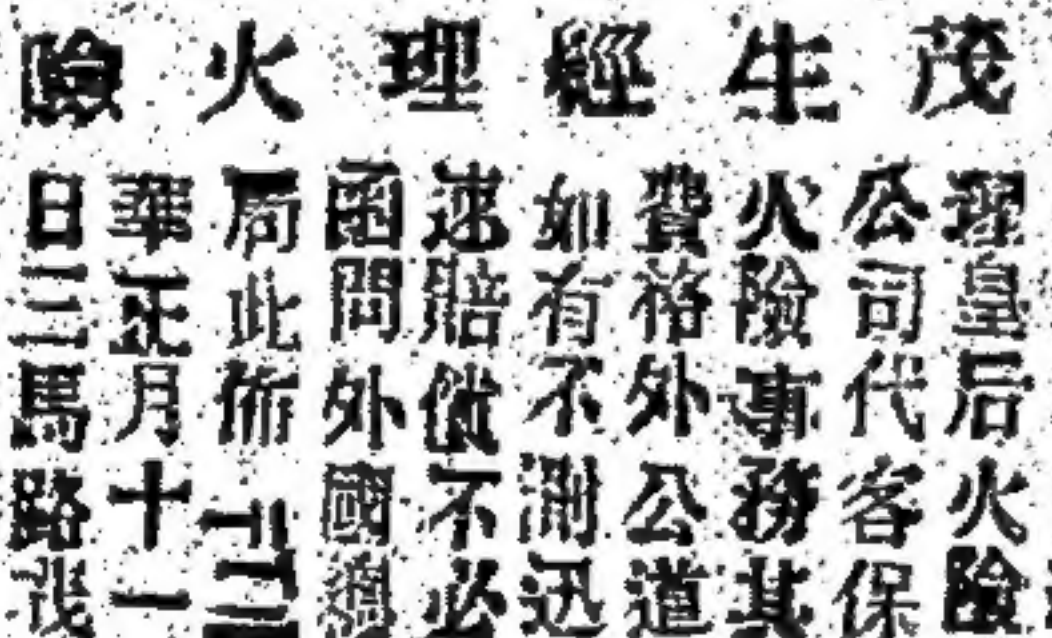 茂生經理火險
理皇后火險
公司代客保
火險事務其
費格外公道
如有不測迅
速賠償不必
函問外國
局此佈
華正月十一
日三馬路茂